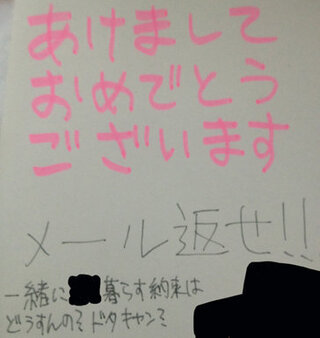 あけまして
おめでとう
ございます
メール返せ!!
一緒に暮らす約束は
どうすんの? ドタキャン?